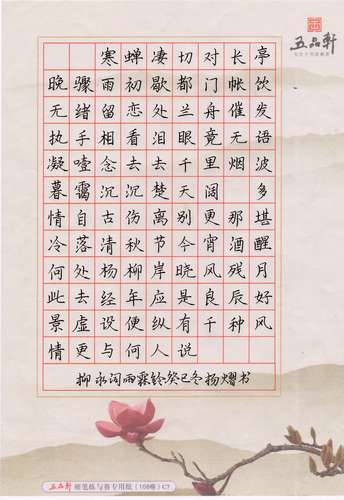 五品軒
寒蝉凄切对长亭
晚骤雨初歇都门帐饮
无绪留恋处兰舟催发
执手相看泪眼竟无语
凝噎念去去千里烟波
暮霭沉沉楚天阔 多
情自古伤离别更那堪
冷落清秋节今宵酒醒
何处杨柳岸晓风残月
此去经年应是良辰好
景虚设便纵有千种风
情更与何人说
柳永词雨霖铃癸巳冬杨熠书
五品軒 硬笔练与赛专用纸（108格）C7